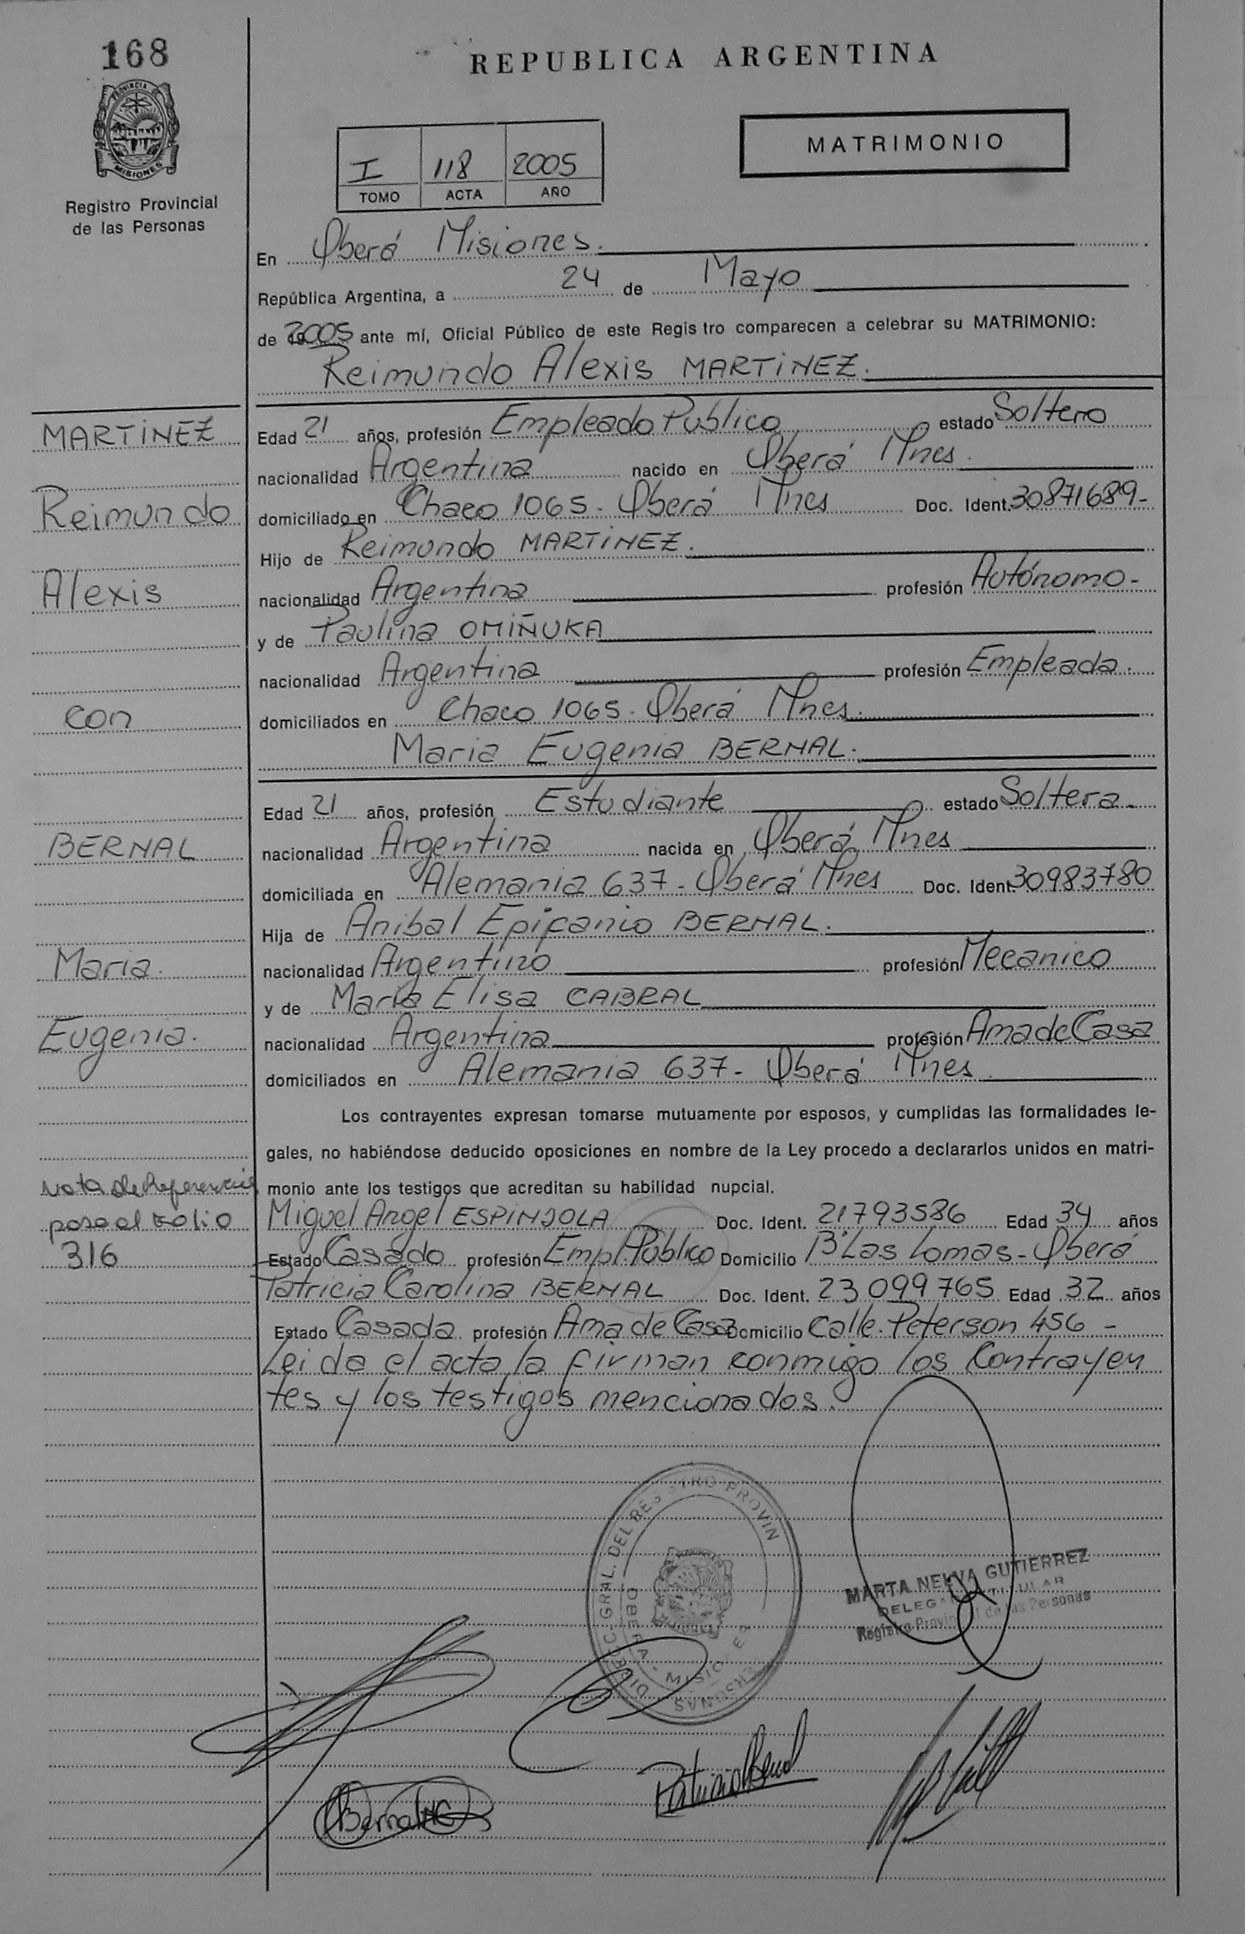 168
REPUBLICA ARGENTINA
PROVINCIA DE
MISIONES
Registro Provincial
de las Personas
I 118 2005
TOMO ACTA AÑO
MATRIMONIO
En Oberá Misiones.
República Argentina, a 24 de Mayo
de 2005 ante mí, Oficial Público de este Regis tro comparecen a celebrar su MATRIMONIO:
Reimundo Alexis MARTINEZ.
MARTINEZ
Reimundo
Alexis
con
BERNAL
Maria.
Eugenia.
Nota de Referencia
pasa al Folio
316
Edad 21 años, profesión Empleado Publico estado Soltero
nacionalidad Argentina nacido en Oberá Mnes.
domiciliado en Chaco 1065 - Oberá Mnes Doc. Ident. 30871689-
Hijo de Reimundo MARTINEZ.
nacionalidad Argentina profesión Autónomo-
y de Paulina OMIÑUKA
nacionalidad Argentina profesión Empleada.
domiciliados en Chaco 1065 - Oberá Mnes.
Maria Eugenia BERNAL.
Edad 21 años, profesión Estudiante estado Soltera.
nacionalidad Argentina nacida en Oberá Mnes
domiciliada en Alemania 637 - Oberá Mnes Doc. Ident. 30983780
Hija de Anibal Epifanio BERNAL.
nacionalidad Argentino profesión Mecanico
y de Maria Elisa CABRAL
nacionalidad Argentina profesión Ama de Casa
domiciliados en Alemania 637- Oberá Mnes
Los contrayentes expresan tomarse mutuamente por esposos, y cumplidas las formalidades le-
gales, no habiéndose deducido oposiciones en nombre de la Ley procedo a declararlos unidos en matri-
monio ante los testigos que acreditan su habilidad nupcial.
Miguel Angel ESPINDOLA Doc. Ident. 21793586 Edad 34 años
Estado Casado profesión Empl. Público Domicilio B° Las Lomas - Oberá
Patricia Carolina BERNAL Doc. Ident. 23 099 765 Edad 32 años
Estado Casada profesión Ama de Casa Domicilio Calle. Peterson 456 -
Leida el acta la firman conmigo los Contrayen
tes y los testigos mencionados.
DIREC. GRAL. DEL REGISTRO PROVIN
PERSONAS
OBERA - MISIONES
MARTA NELVA GUTIERREZ
DELEGADA TITULAR
Registro Provincial de las Personas
Bernal
Patricia Bernal